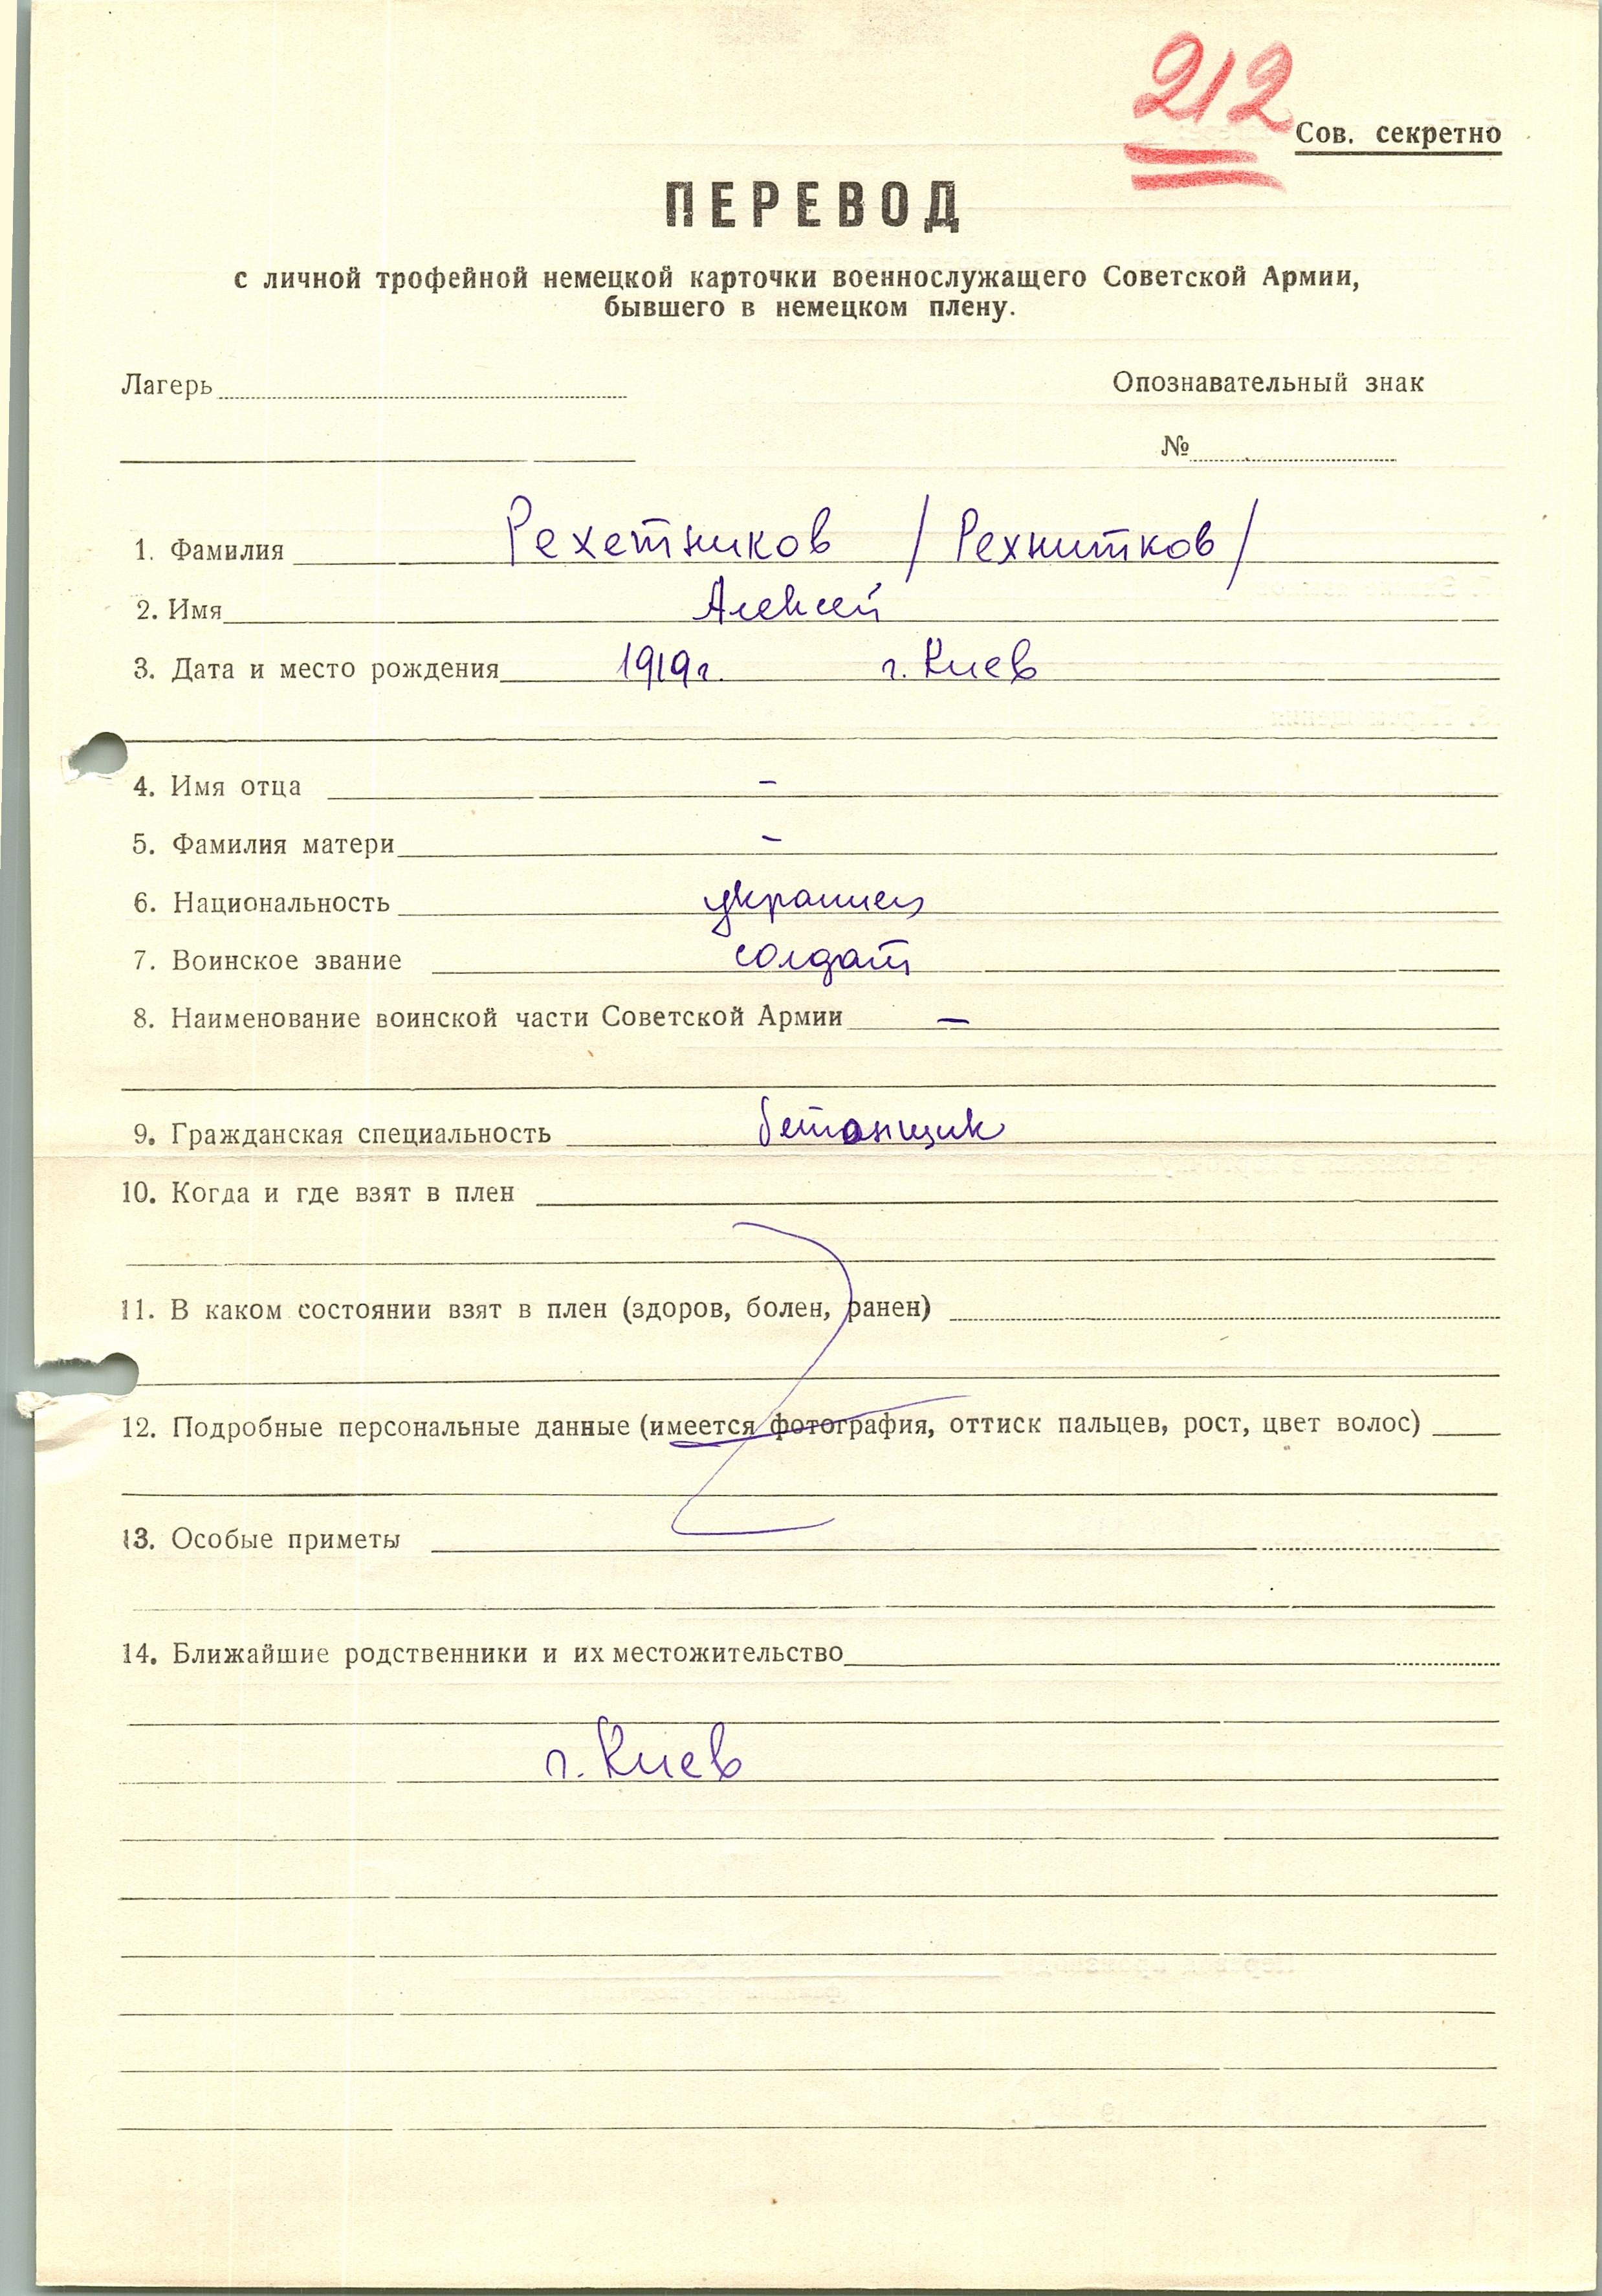 212
Сов. секретно
ПЕРЕВОД
с личной трофейной немецкой карточки военнослужащего Советской Армии,
бывшего в немецком плену.
Лагерь Опознавательный знак
№
1. Фамилия Рехетников /Рехнитков/
2. Имя Алексей
3. Дата и место рождения 1919г. г. Киев
4. Имя отца –
5. Фамилия матери –
6. Национальность украинец
7. Воинское звание солдат
8. Наименование воинской части Советской Армии –
9. Гражданская специальность бетонщик
10. Когда и где взят в плен
11. В каком состоянии взят в плен (здоров, болен, ранен)
12. Подробные персональные данные (имеется фотография, оттиск пальцев, рост, цвет волос)
13. Особые приметы
14. Ближайшие родственники и их местожительство
г. Киев